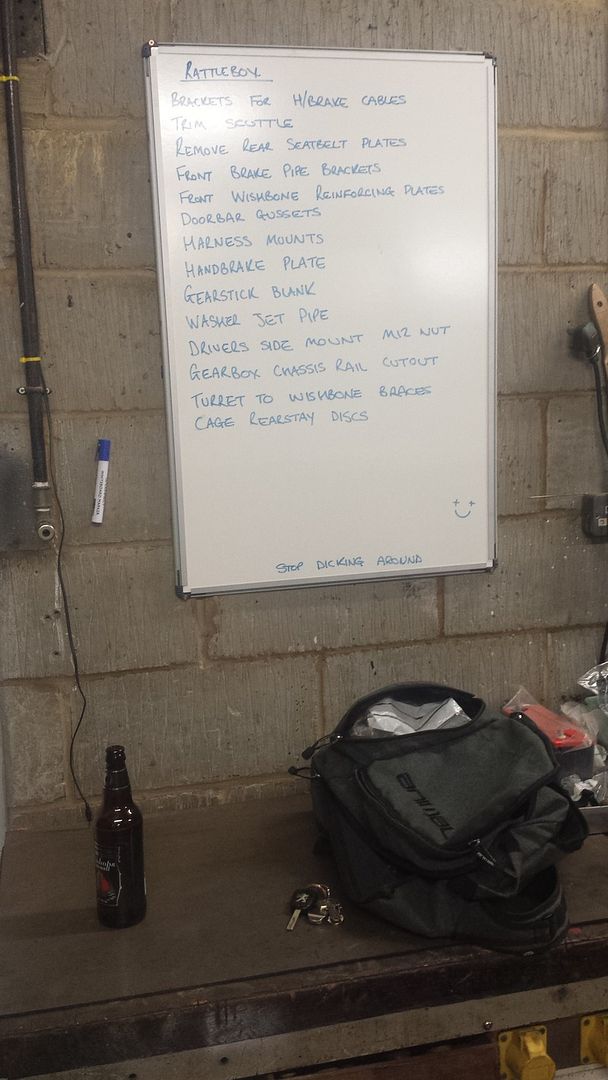 RATTLEBOX.
BRACKETS FOR H/BRAKE CABLES
TRIM SCUTTLE
REMOVE REAR SEATBELT PLATES
FRONT BRAKE PIPE BRACKETS
FRONT WISHBONE REINFORCING PLATES
DOORBAR GUSSETS
HARNESS MOUNTS
HANDBRAKE PLATE
GEARSTICK BLANK
WASHER JET PIPE
DRIVERS SIDE MOUNT M12 NUT
GEARBOX CHASSIS RAIL CUTOUT
TURRET TO WISHBONE BRACES
CAGE REARSTAY DISCS
STOP DICKING AROUND
animal